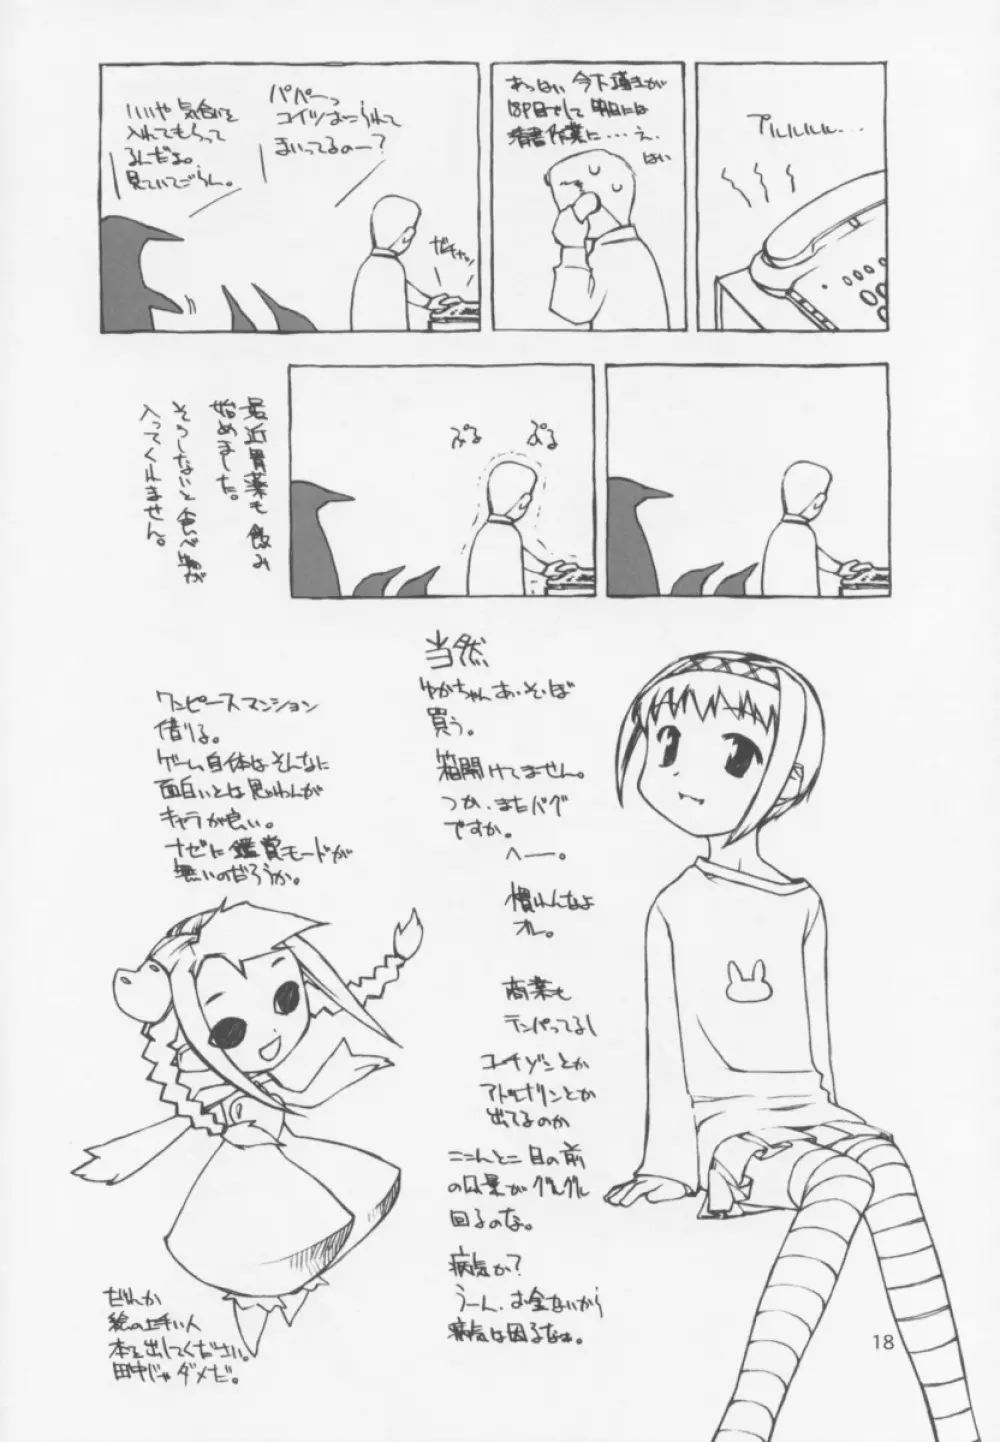 プルルルル…
あっはい 今下描きが
終わりまして 明日には
清書作業に・・・・え、
はい
パパーっ
コイツおこられて
まいってるのー？
いいや 気合いを
入れてもらって
るんだよ。
見ていてごらん。
ガチャッ
ぷる
ぷる
最近胃薬も飲み
始めました。
そうしないと食べ物が
入ってくれません。
当然
ゆかちゃんあ・そ・ぼ
買う。
箱開けてません。
つか、またバグ
ですか。
へー。
慣れんなよ
オレ。
商業も
テンパってるし
コーチゾンとか
アドレナリンとか
出てるのか
ここんとこ目の前
の風景がグルグル
回るのな。
病気か？
うーん、お金ないから
病気は困るなぁ。
ワンピースマンション
借りる。
ゲーム自体はそんなに
面白いとは思わんが
キャラが良い。
ナゼに鑑賞モードが
無いのだろうか。
だれか
絵の上手い人
本を出してください。
田中じゃダメビ。
18